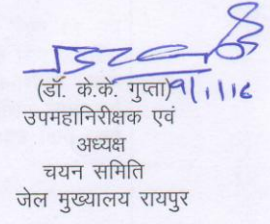 (डॉ. के.के. गुप्ता) 9/1/16
उपमहानिरीक्षक एवं
अध्यक्ष
चयन समिति
जेल मुख्यालय रायपुर